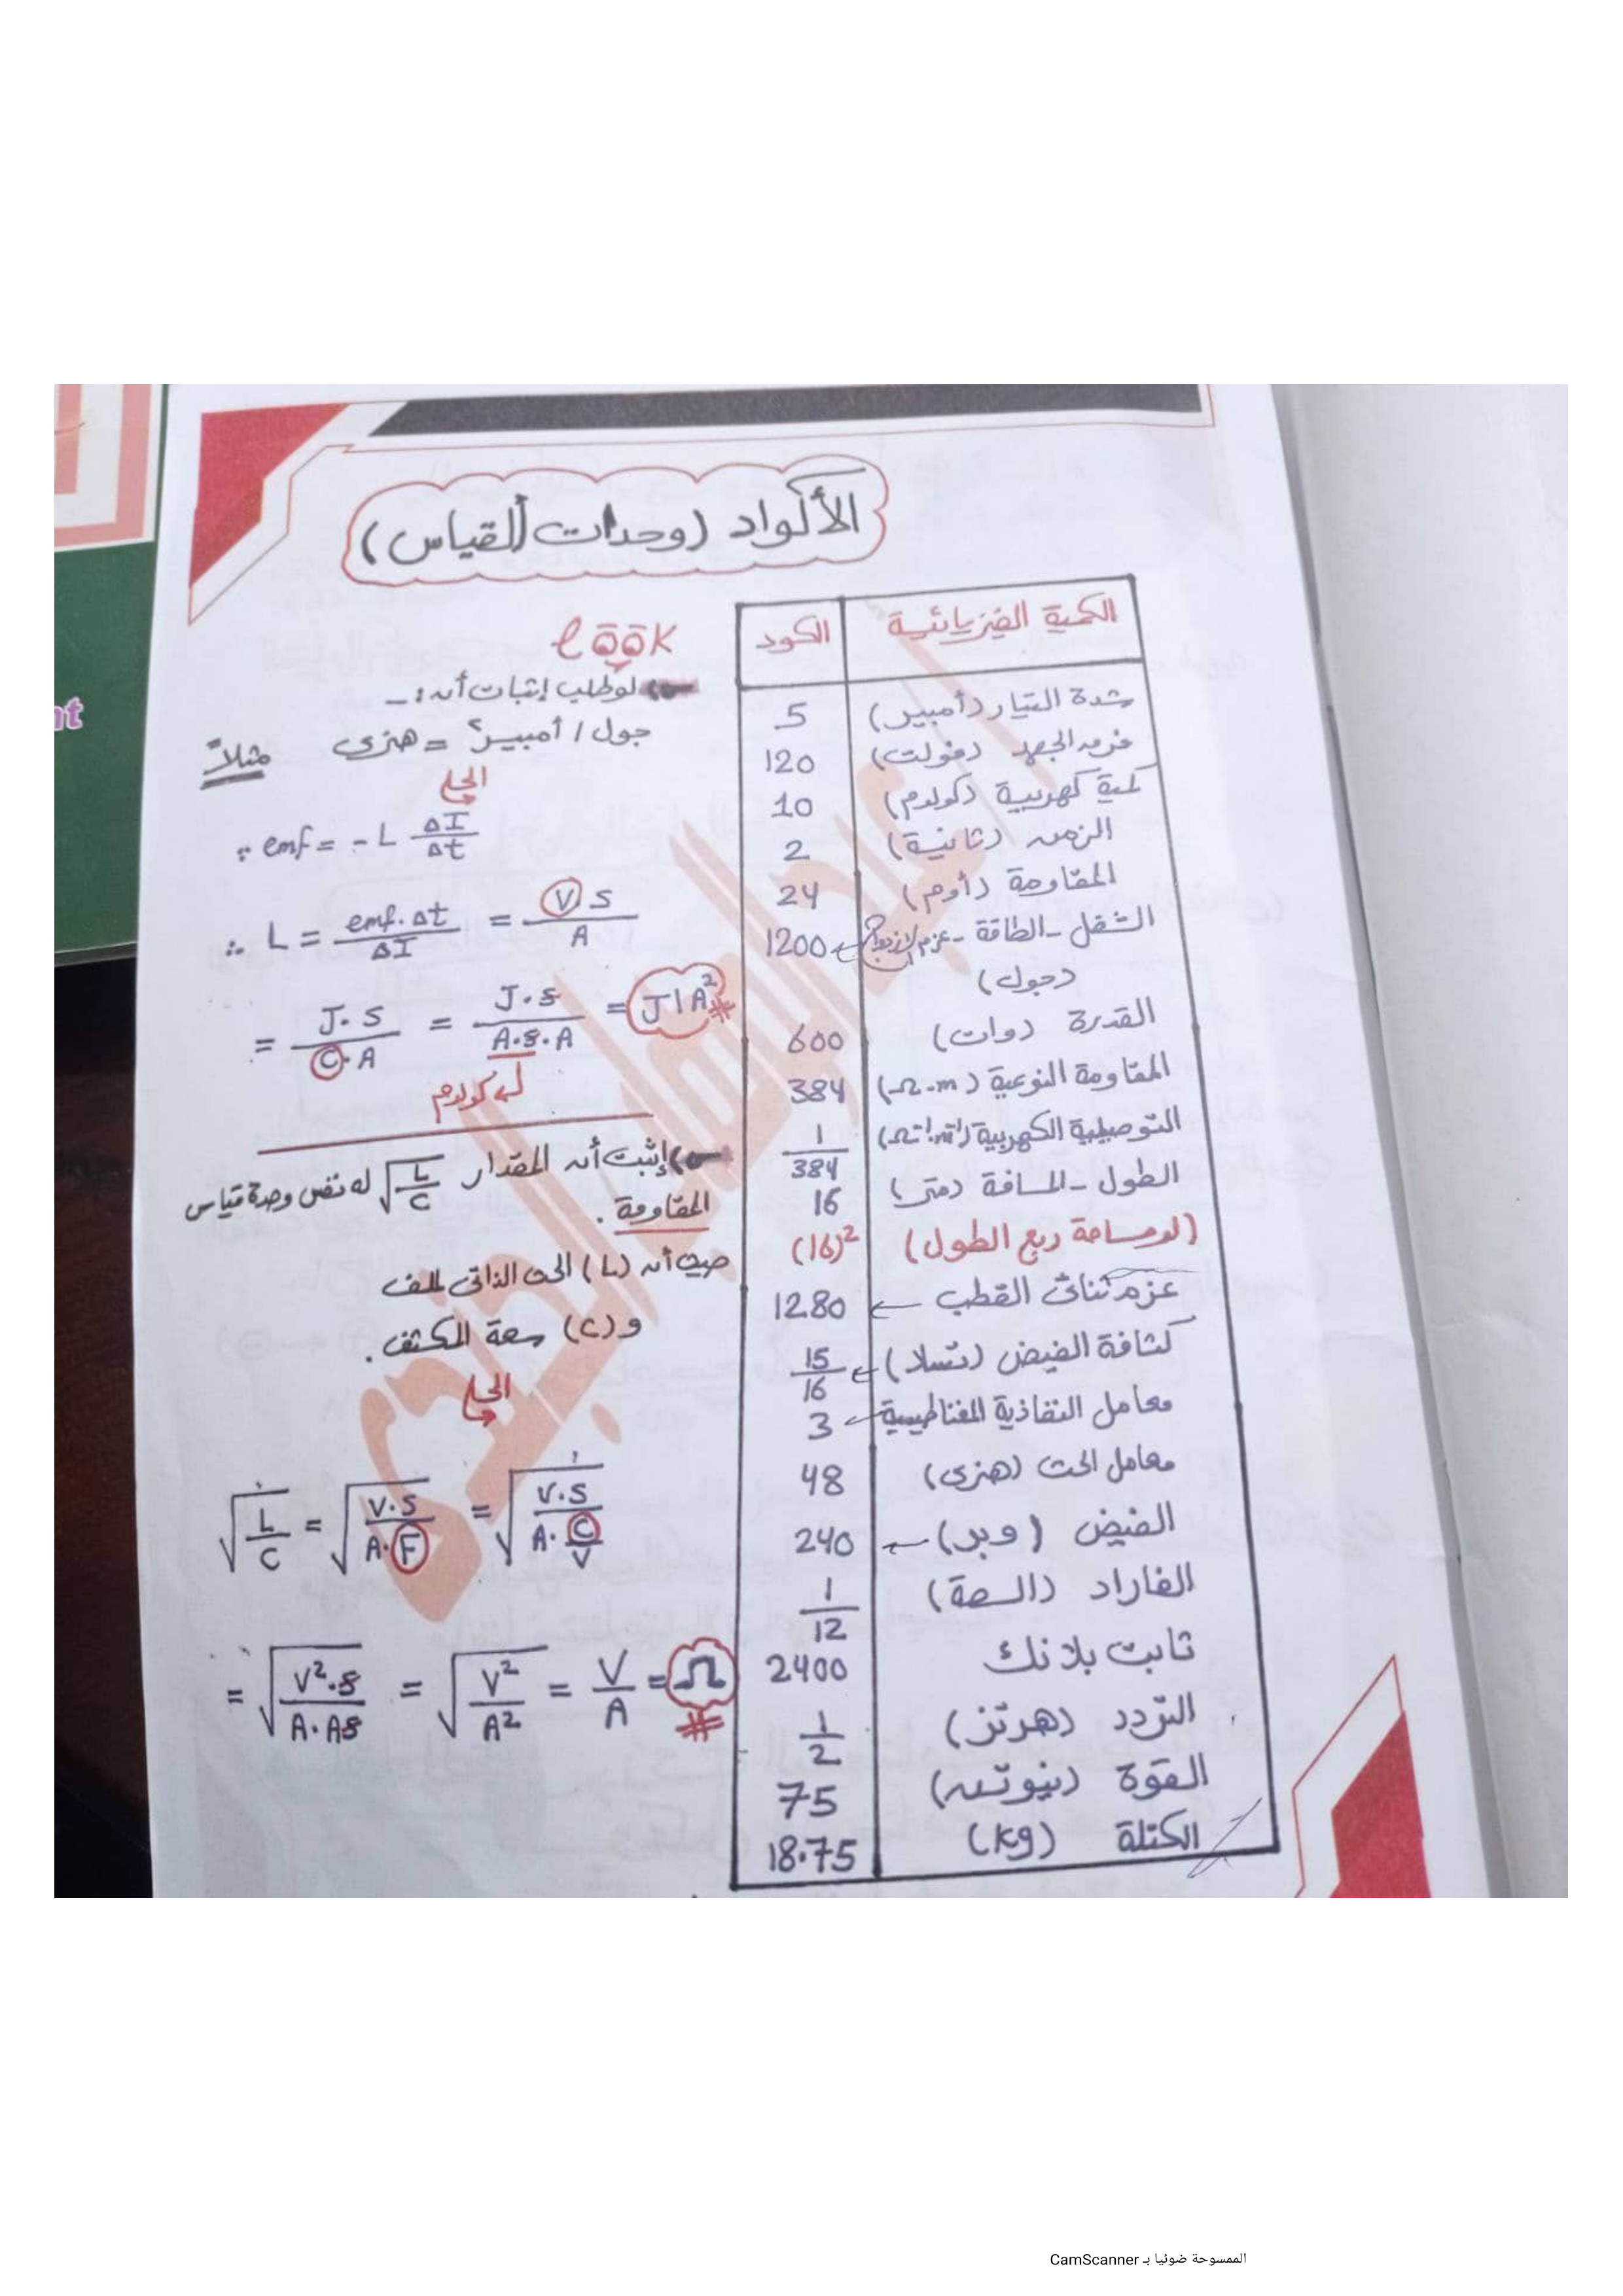 الأكواد (وحدات القياس)
الكمية الفيزيائية | الكود
شدة التيار (أمبير) | 5
فرق الجهد (فولت) | 120
كمية كهربية (كولوم) | 10
الزمن (ثانية) | 2
المقاومة (أوم) | 24
الشغل - الطاقة - عزم الازدواج ← 1200
(جول)
القدرة (وات) | 600
المقاومة النوعية (Ω.m) | 384
التوصيلية الكهربية (Ω⁻¹.m⁻¹) | 1/384
الطول - المسافة (متر) | 16
(لو مساحة ربع الطول) | (16)²
عزم ثنائى القطب ← 1280
كثافة الفيض (تسلا) ← 15/16
معامل النفاذية المغناطيسية ← 3
معامل الحث (هنرى) | 48
الفيض (وبر) ← 240
الفاراد (السعة) | 1/12
ثابت بلانك | 2400
التردد (هرتز) | 1/2
القوة (نيوتن) | 75
الكتلة (kg) | 18.75
look
لو طلب إثبات أن :-
جول / أمبير² = هنرى مثلاً
الحل
∵ emf = - L ΔI/Δt
∴ L = emf.Δt/ΔI = V.S/A
= J.S/C.A = J.S/A.S.A = J/A² #
كولوم
إثبت أن المقدار √L/C له نفس وحدة قياس
المقاومة .
حيث أن (L) الحث الذاتى للملف
و (C) سعة المكثف .
الحل
√L/C = √V.S/A.F = √V.S/A.C/V
= √V².S/A.AS = √V²/A² = V/A = Ω #
الممسوحة ضوئيا بـ CamScanner